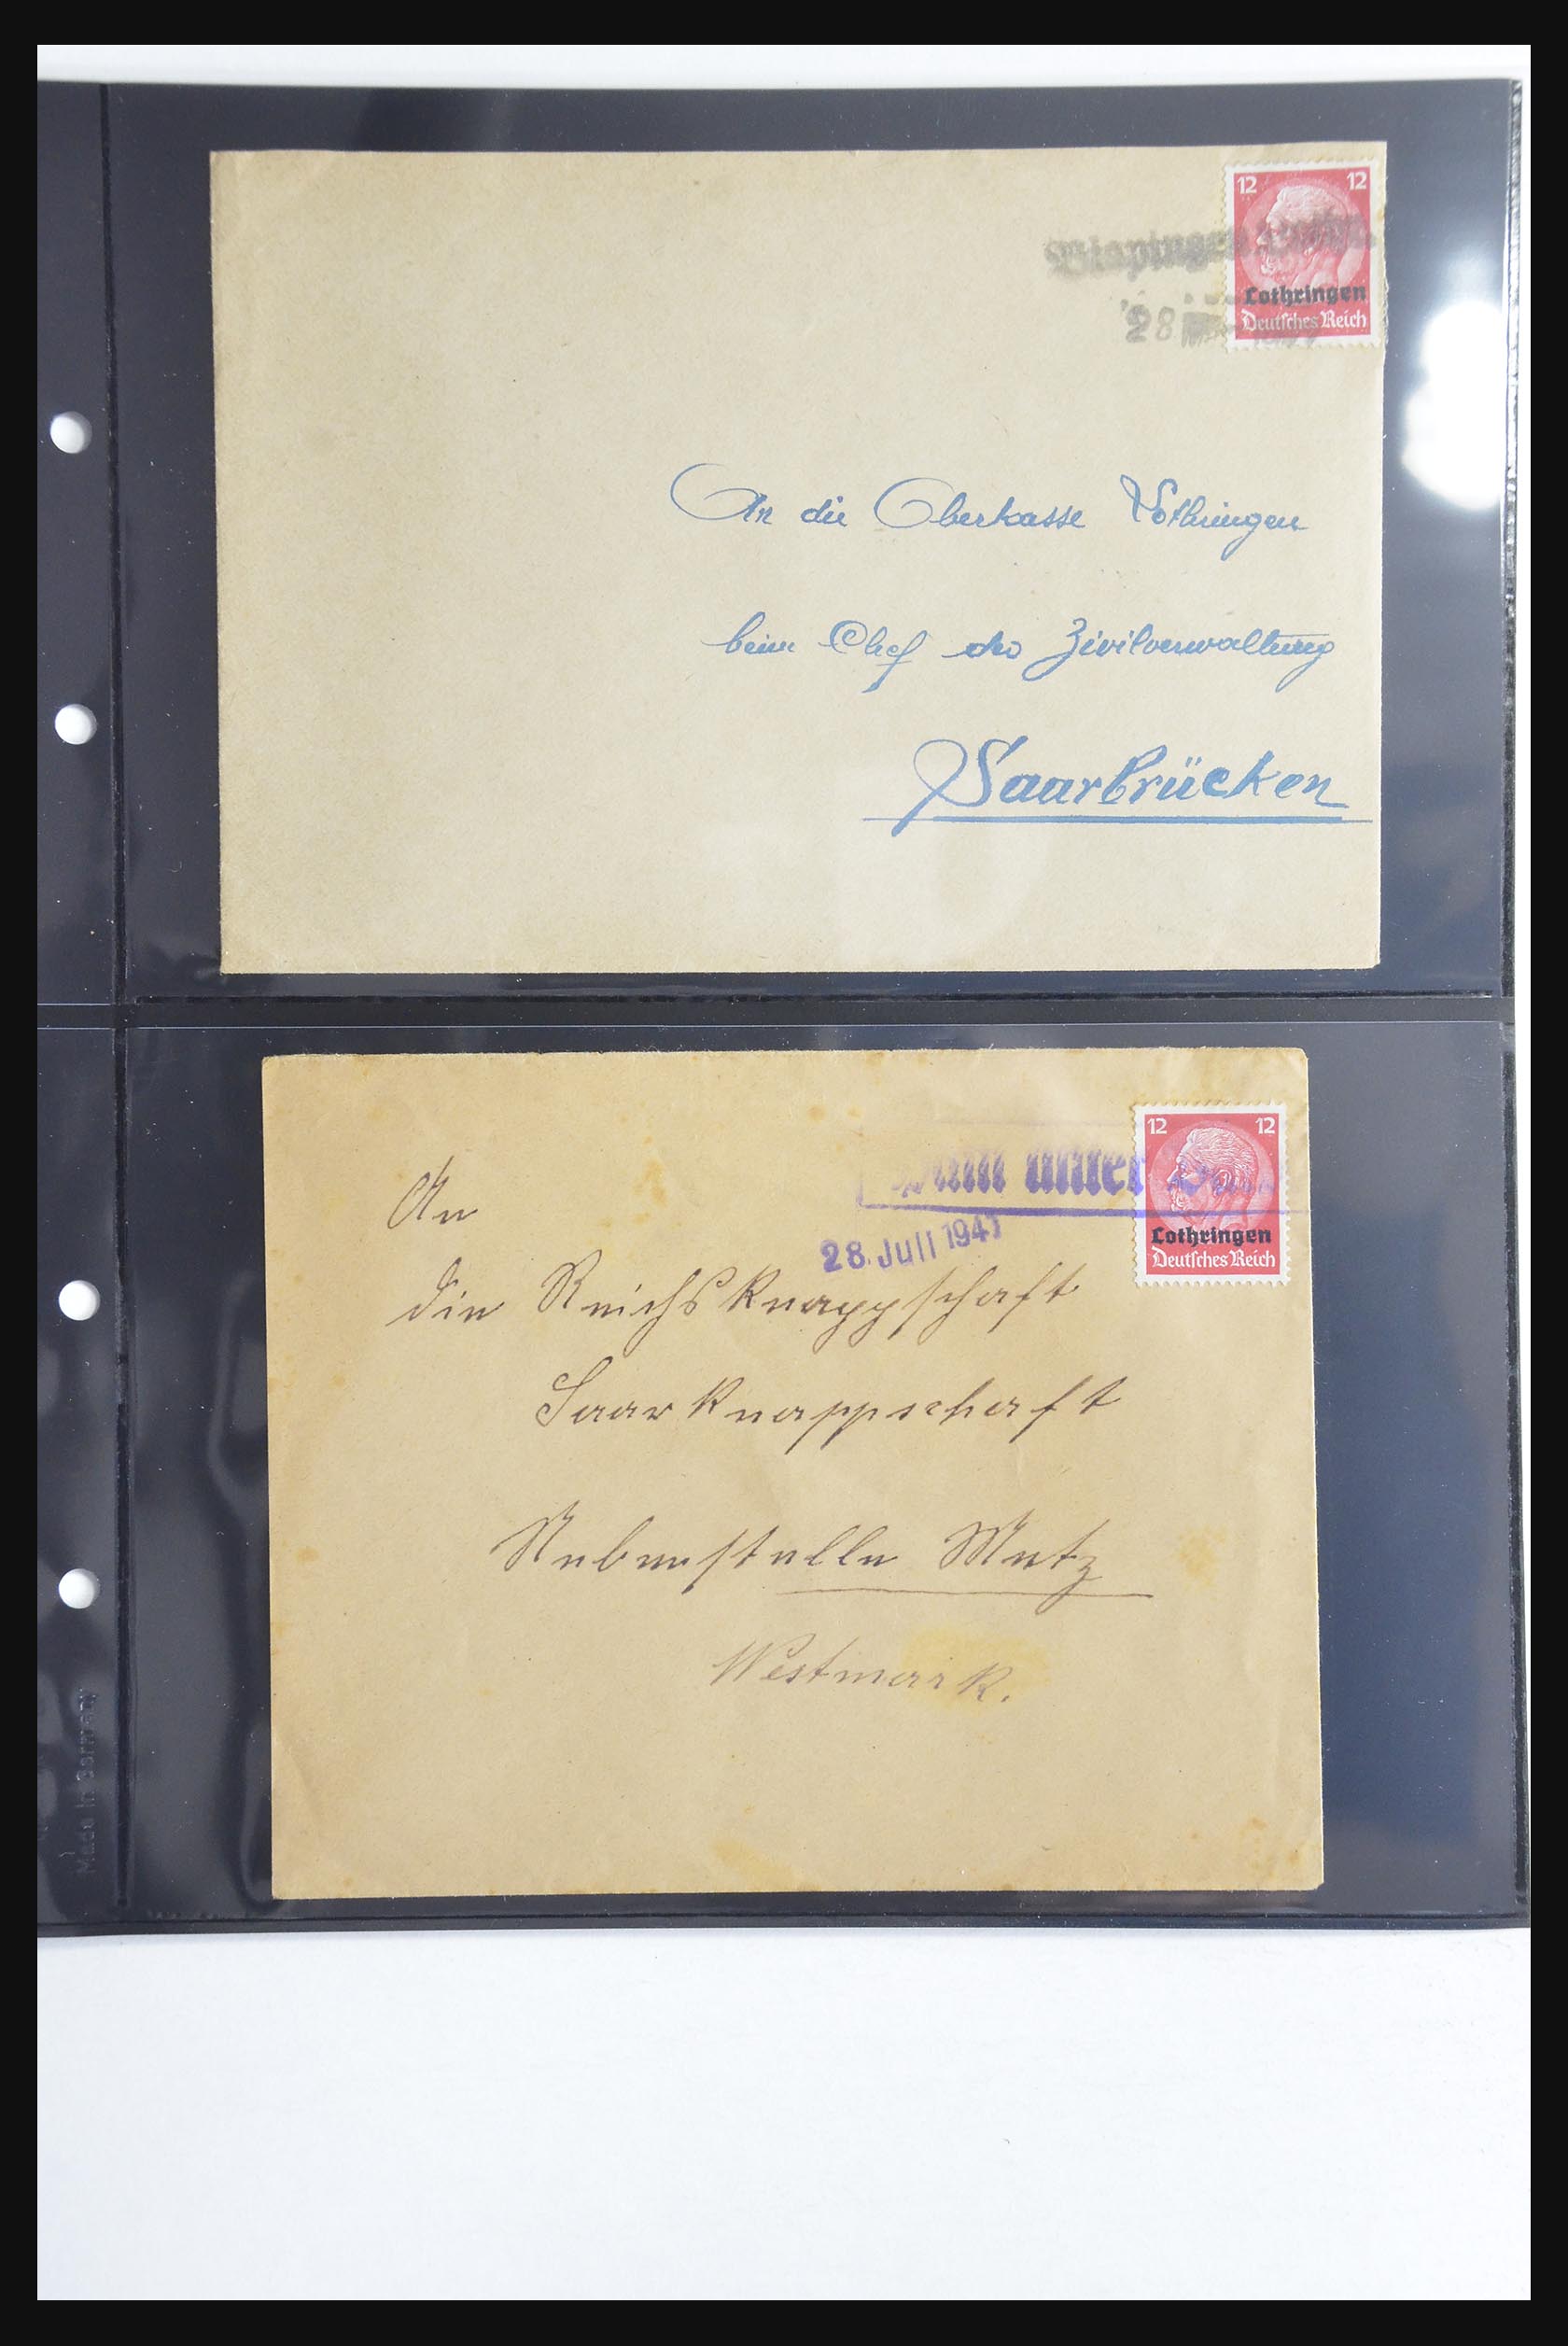 12 12
Lothringen
Deutsches Reich
28
An die Oberkasse Lothringen
beim Chef der Zivilverwaltung
Saarbrücken
12 12
Lothringen
Deutsches Reich
28. Juli 1941
An
die Reichsknappschaft
Saarknappschaft
Nebenstelle Metz
Westmark.
Made in Germany